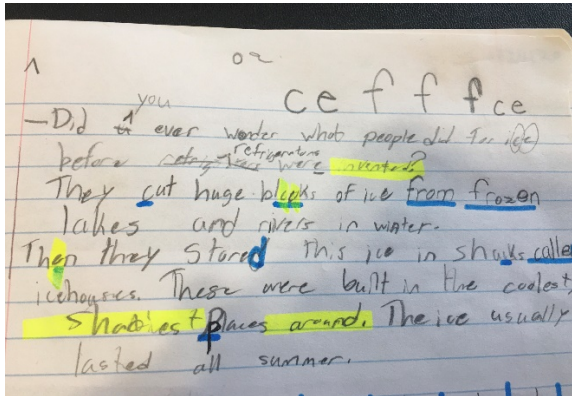 you
ce f f f ce
— Did ever wonder what people did for ice
before refrigerators were invented?
They cut huge blocks of ice from frozen
lakes and rivers in winter.
Then they stored this ice in shaks calle
icehouses. These were built in the coolest,
Shadiest places around. The ice usually
lasted all summer.